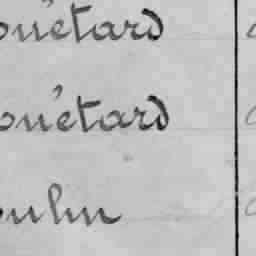 ouëtard
ouëtard
oulin